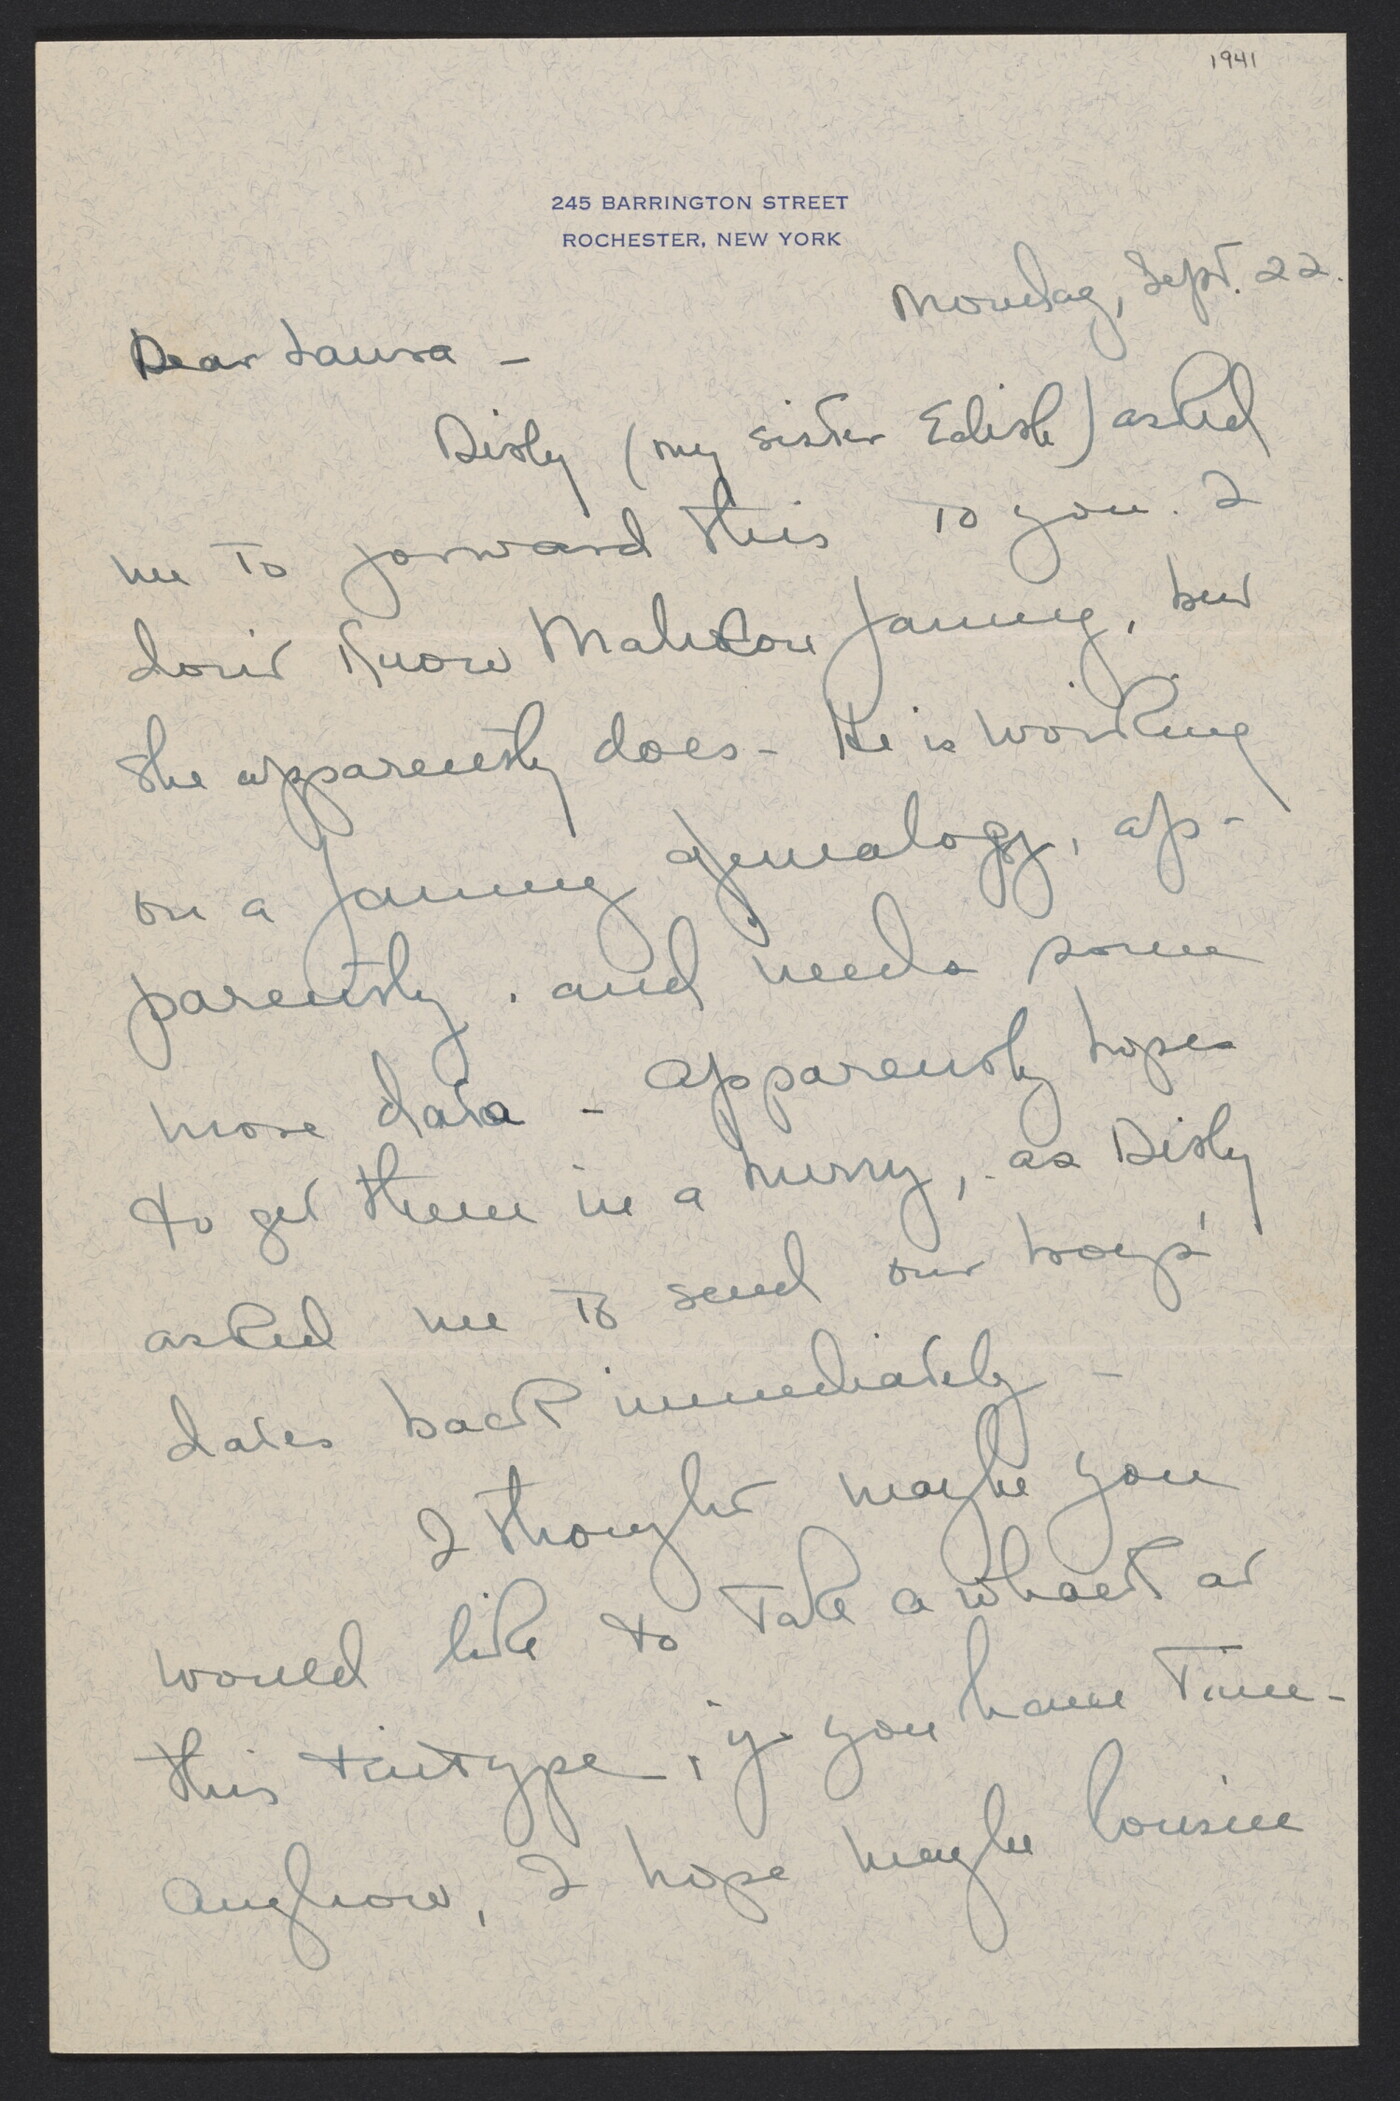 1941
245 BARRINGTON STREET
ROCHESTER, NEW YORK
Monday, Sept. 22.
Dear Laura –
(my sister Edith) asked
me to forward this to you. I
don't know Mahlon Janney, but
she apparently does – He is working
on a Janney genealogy, ap-
parently, and needs some
more data – apparently hopes
to get them in a hurry, as
asked me to send our boys'
dates back immediately –
I thought maybe you
would like to take a whack at
this tintype, if you have time –
Anyhow, I hope maybe Cousin